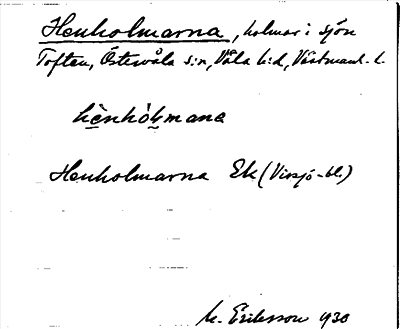 Henholmarna, holmar i sjön
Toften, Östervåla s:n, Våla h:d, Västmanl. l.
hènhòl̥mana
Henholmarna Ek (Vissjö-bl.)
M. Eriksson 1930